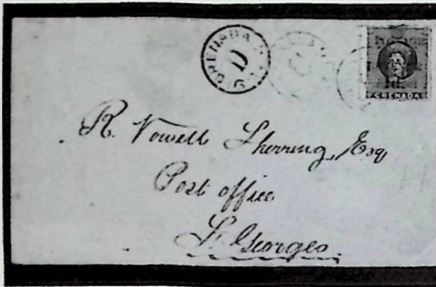 GRENADA
D
GRENADA
R. Vowell Sherring, Esq
Post office
St Georges.